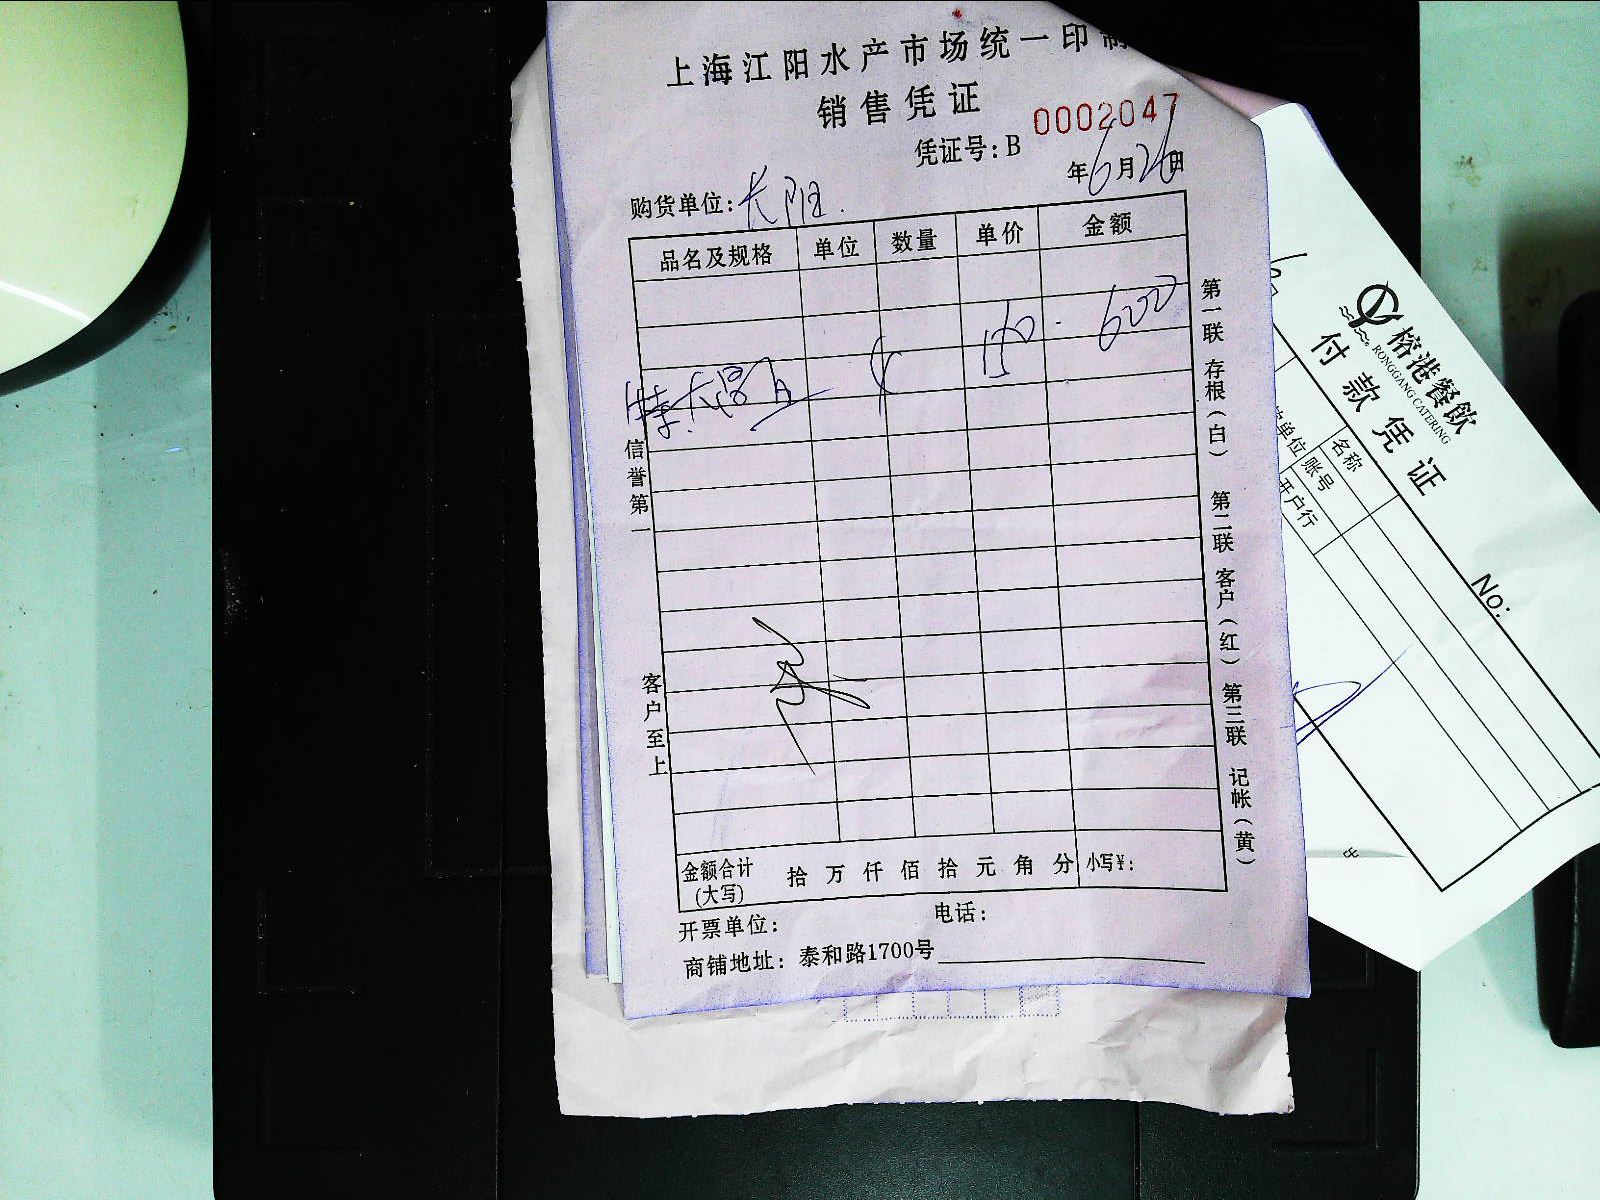 上海江阳水产市场统一印制
销售凭证
凭证号:B 0002047
年6月26日
购货单位:长阳
品名及规格 单位 数量 单价 金额
特大 4 150 600
信誉第一
客户至上
第一联 存根(白) 第二联 客户(红) 第三联 记帐(黄)
金额合计(大写) 拾 万 仟 佰 拾 元 角 分 小写¥:
开票单位: 电话:
商铺地址: 泰和路1700号
榕港餐飲
RONGGANG CATERING
付款凭证
No:
单位
名称
账号
开户行